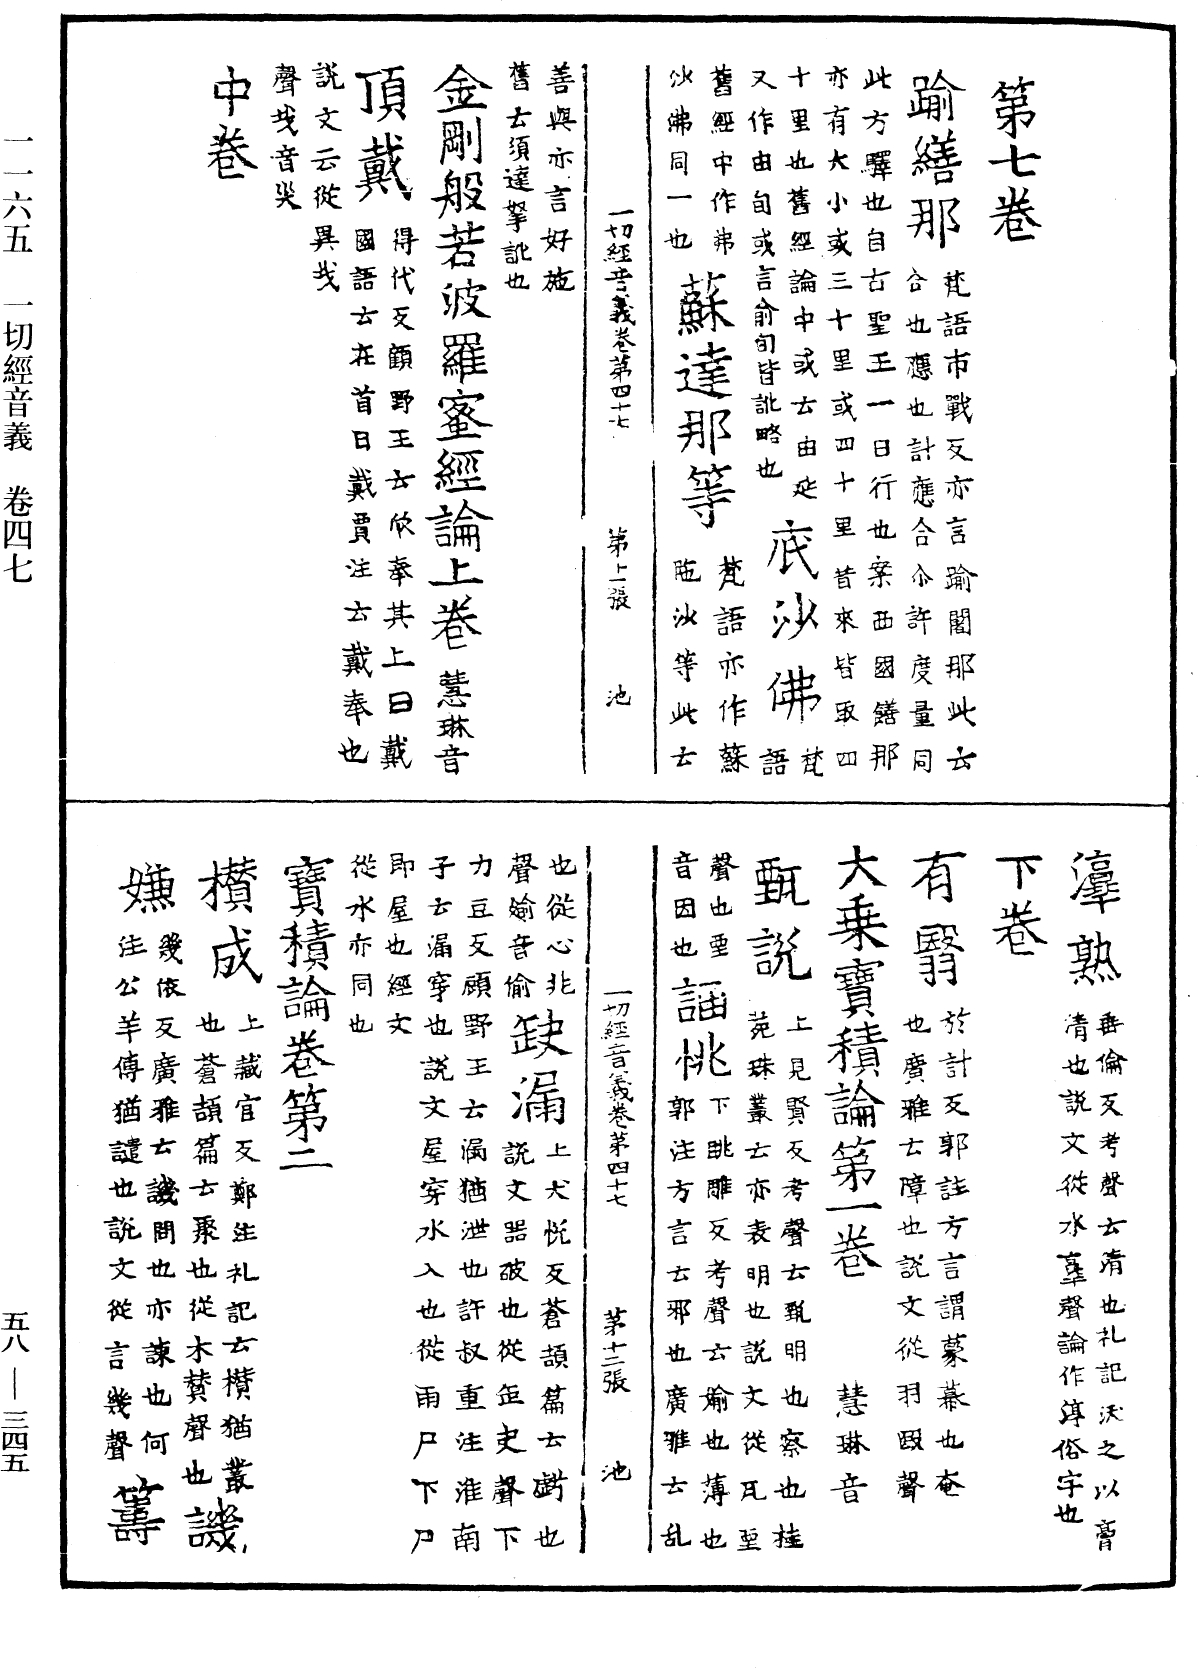 一一六五　一切經音義　卷四七
五八—三四五
第七卷
踰繕那
梵語市戰反亦言踰闍那此云
合也應也計應合尒許度量同
此方驛也自古聖王一日行也案西國繕那
亦有大小或三十里或四十里昔來皆取四
十里也舊經論中或云由延
又作由旬或言俞旬皆訛略也
底沙佛
梵
語
舊經中作弗
沙佛同一也
蘇達那等
梵語亦作蘇
陁沙等此云
一切經音義卷第四十七　第十一張　池
善與亦言好施
舊云須達拏訛也
金剛般若波羅蜜經論上卷　慧琳音
頂戴
得代反顧野王云欣奉其上曰戴
國語云在首曰戴賈注云戴奉也
說文云從異𢦏
聲𢦏音哉
中卷
淳熟
垂倫反考聲云清也礼記沃之以膏
清也說文從水𦎫聲論作淳俗字也
下卷
有翳
於計反郭註方言謂蒙幕也奄
也廣雅云障也說文從羽殹聲
大乘寶積論第一卷　慧琳音
甄說
上見賢反考聲云甄明也察也桂
苑珠叢云亦表明也說文從瓦垔
聲也垔
音因也
謟恌
下眺雕反考聲云媮也薄也
郭注方言云邪也廣雅云乱
一切經音義卷第四十七　第十二張　池
也從心兆
聲媮音偷
缺漏
上犬悅反蒼頡篇云虧也
說文器破也從缶史聲下
力豆反顧野王云漏猶泄也許叔重注淮南
子云漏穿也說文屋穿水入也從雨尸下尸
即屋也經文
從水亦同也
寶積論卷第二
欑成
上藏官反鄭注礼記云欑猶叢
也蒼頡篇云聚也從木贊聲也
譏
嫌
幾依反廣雅云譏問也亦諫也何
注公羊傳猶譴也說文從言幾聲
籌